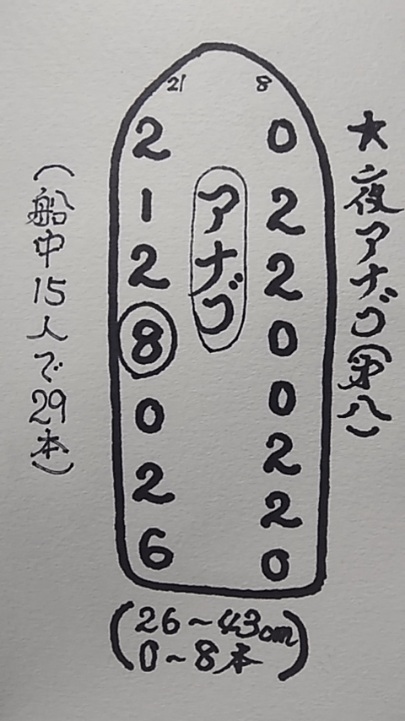 ★夜アナゴ(第八)
21 8
2 0
1 2
2 2
8 0
0 0
2 2
6 2
0
アナゴ
(船中15人で29本)
(26~43cm
0~8本)